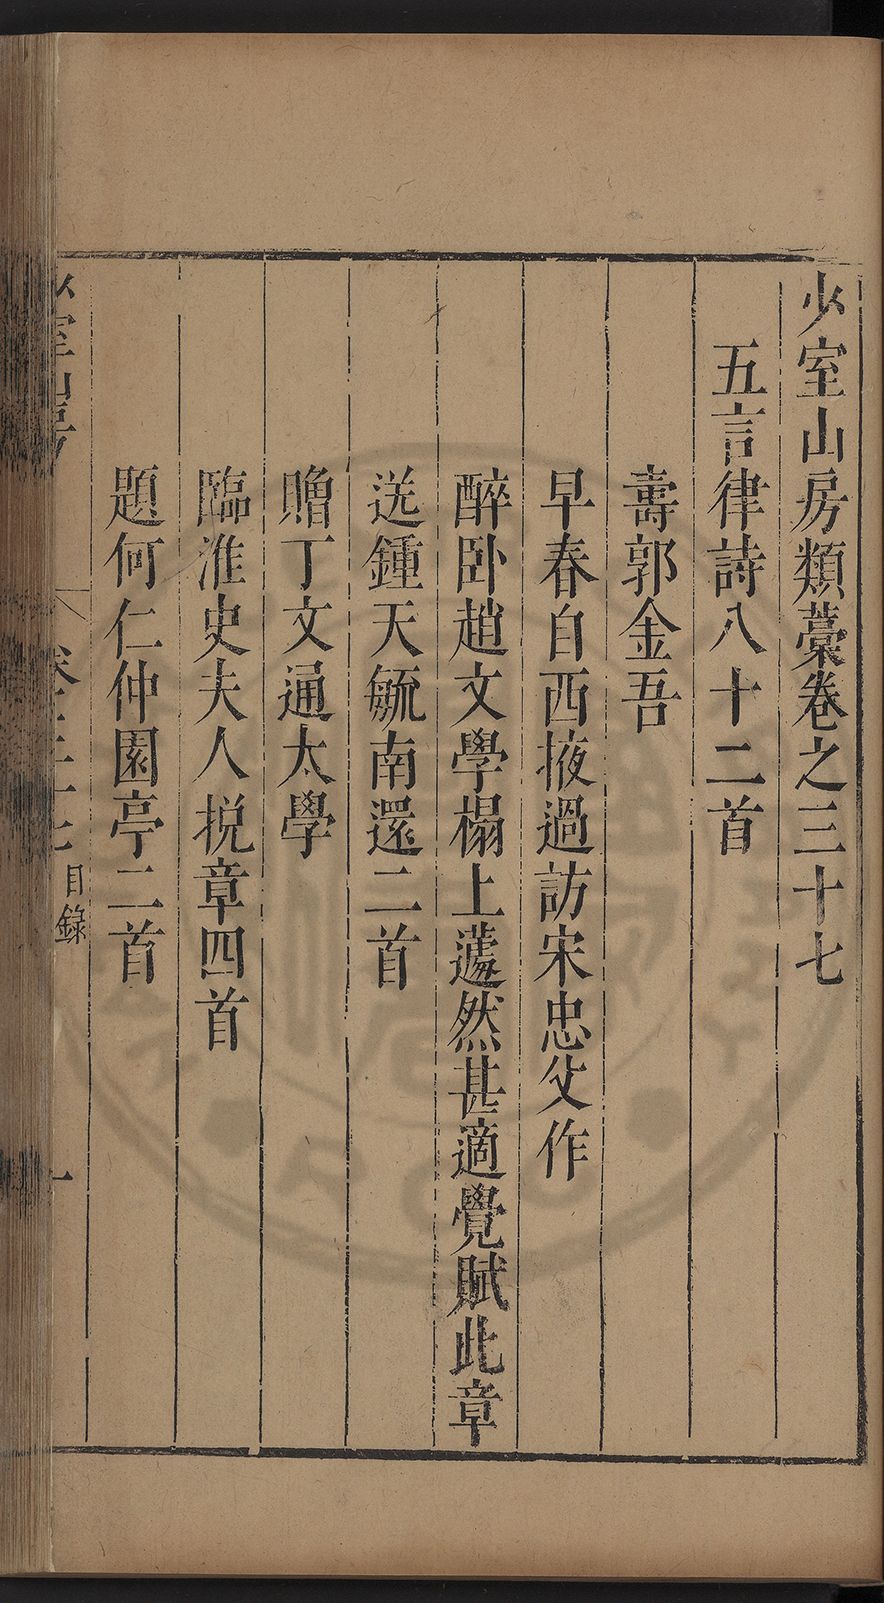 少室山房類藁卷之三十七
五言律詩八十二首
壽郭金吾
早春自西掖過訪宋忠父作
醉卧趙文學榻上蘧然甚適覺賦此章
送鍾天毓南還二首
贈丁文通太學
臨淮史夫人挽章四首
題何仁仲園亭二首
少室山房
卷三十七
目錄
一